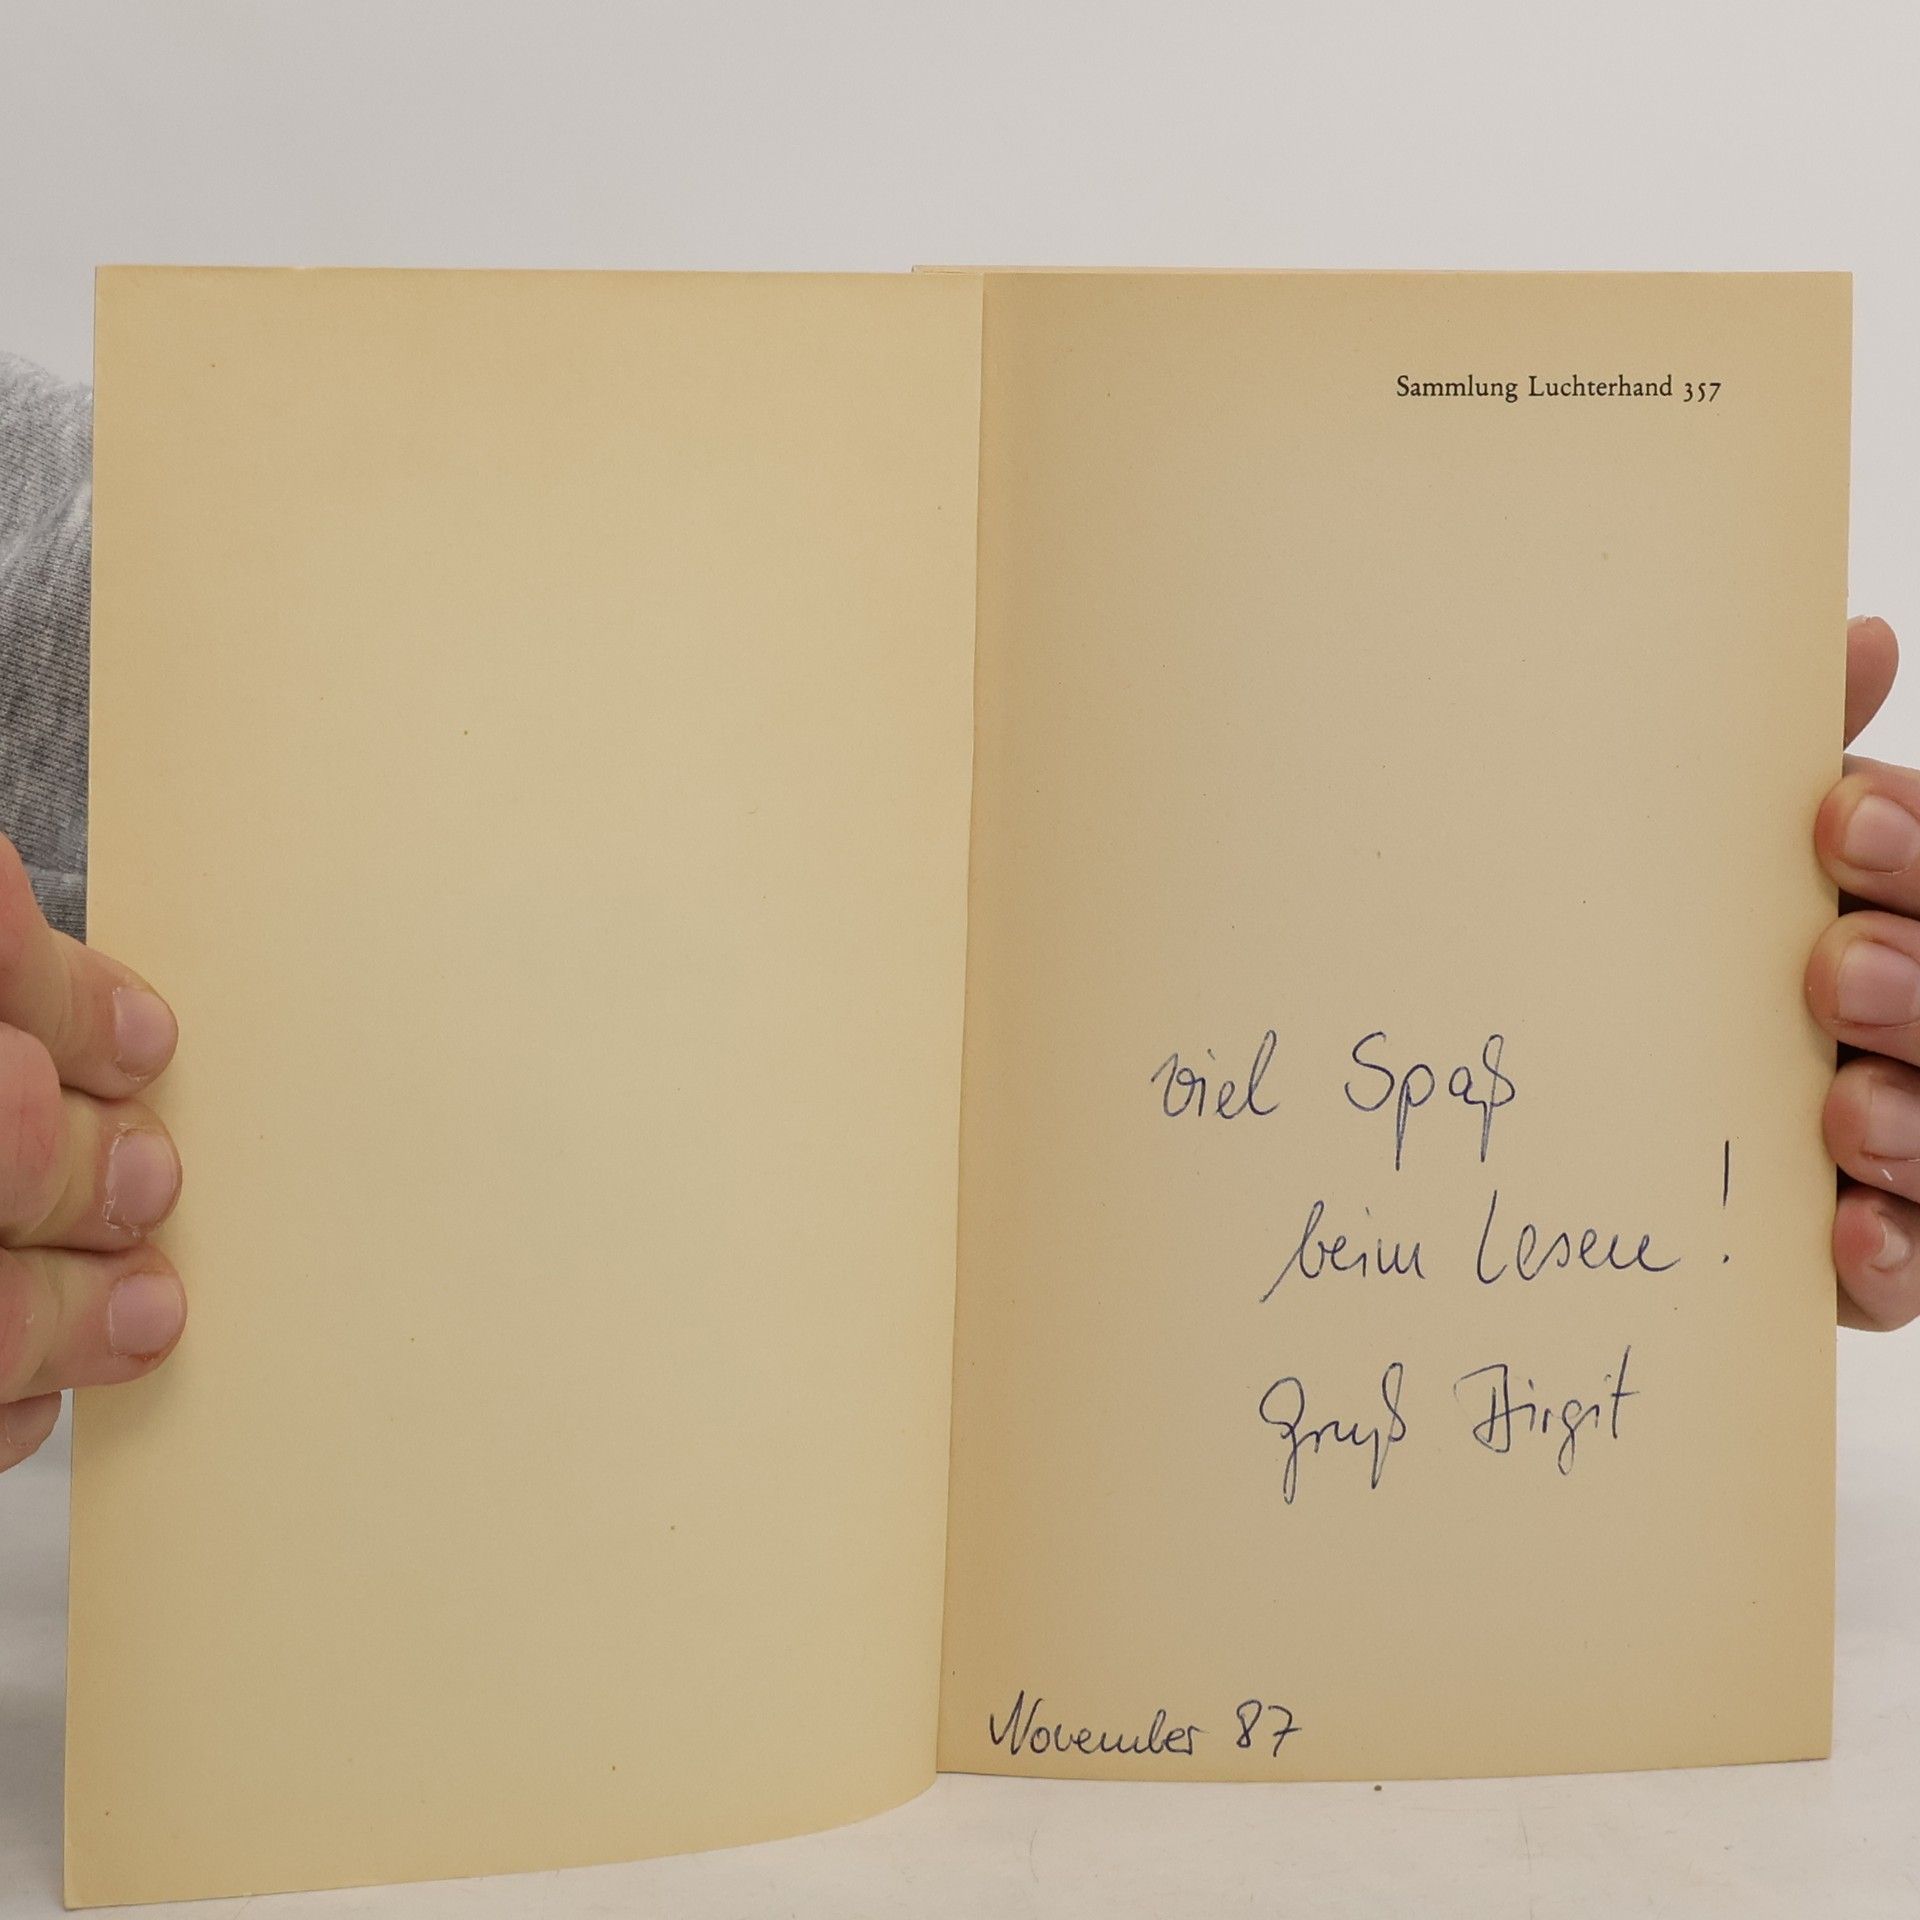 Sammlung Luchterhand 357
viel Spaß
beim Lesen!
Gruß Birgit
November 87